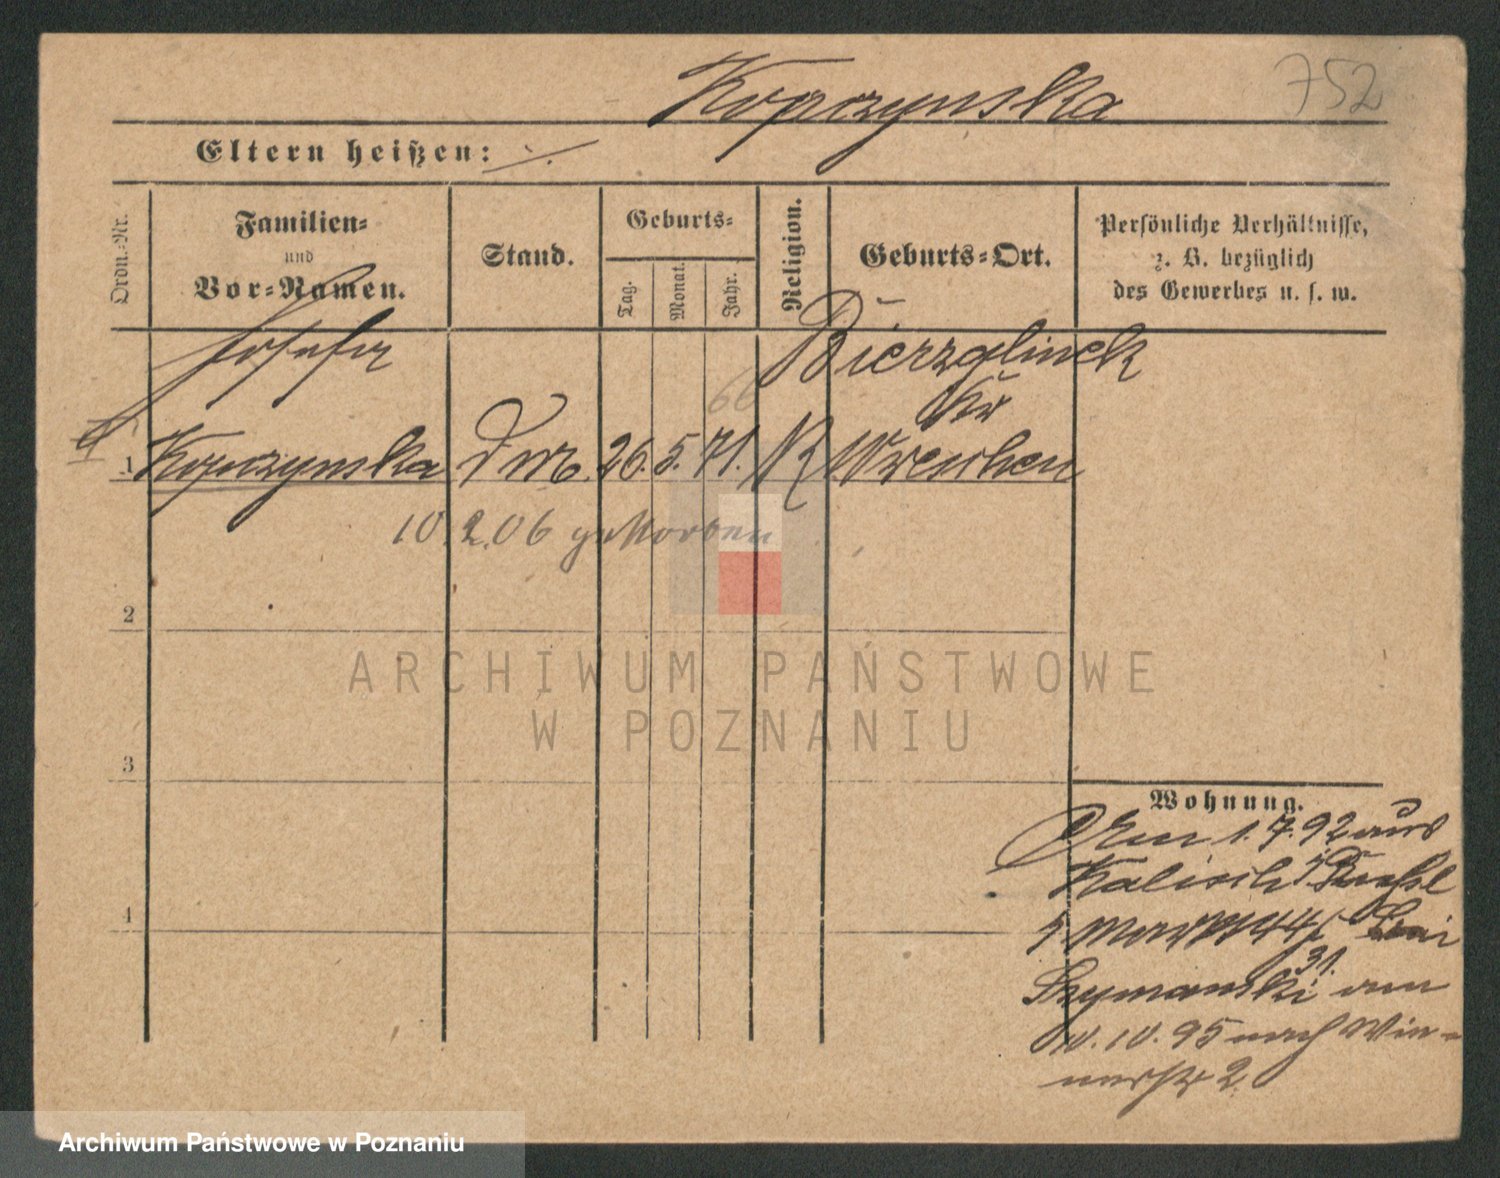 Kopczynska
752
Eltern heißen: ·/·
Ordn.-Nr.
Familien-
und
Vor-Namen.
Stand.
Geburts-
Tag.
Monat.
Jahr.
Religion.
Geburts-Ort.
Persönliche Verhältnisse,
z. B. bezüglich
des Gewerbes u. s. w.
Josefa
Bierzglinek
66
Kr
1 Kopczynska 26. 5. 71. K Wreschen
10.2.06 gestorben
2
3
4
Wohnung.
Am 1.7.92 aus
Kalisch
Markt 44 bei
31.
Szymanski am
10.10.95 nach Wie-
nerstr 2.
ARCHIWUM PAŃSTWOWE
W POZNANIU
Archiwum Państwowe w Poznaniu